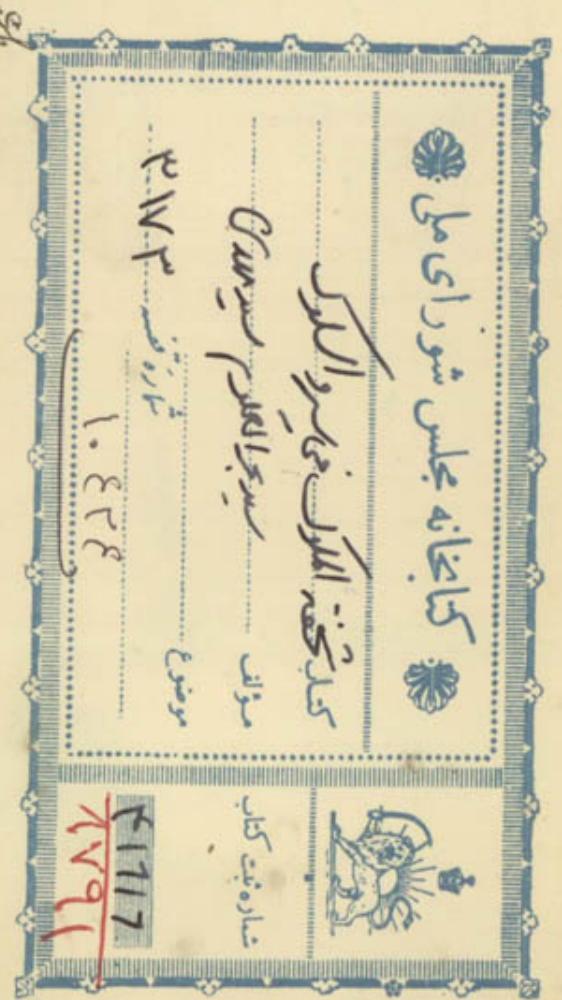 کتابخانه مجلس شورای ملی
کتاب تحفة الملوک فی سیر و السلوک
مؤلف سید بحرالعلوم سید مهدی
موضوع
شماره قفسه ۳۱۷۳
۱۰۴۲۴
شماره ثبت کتاب
۴۱۶۱۷